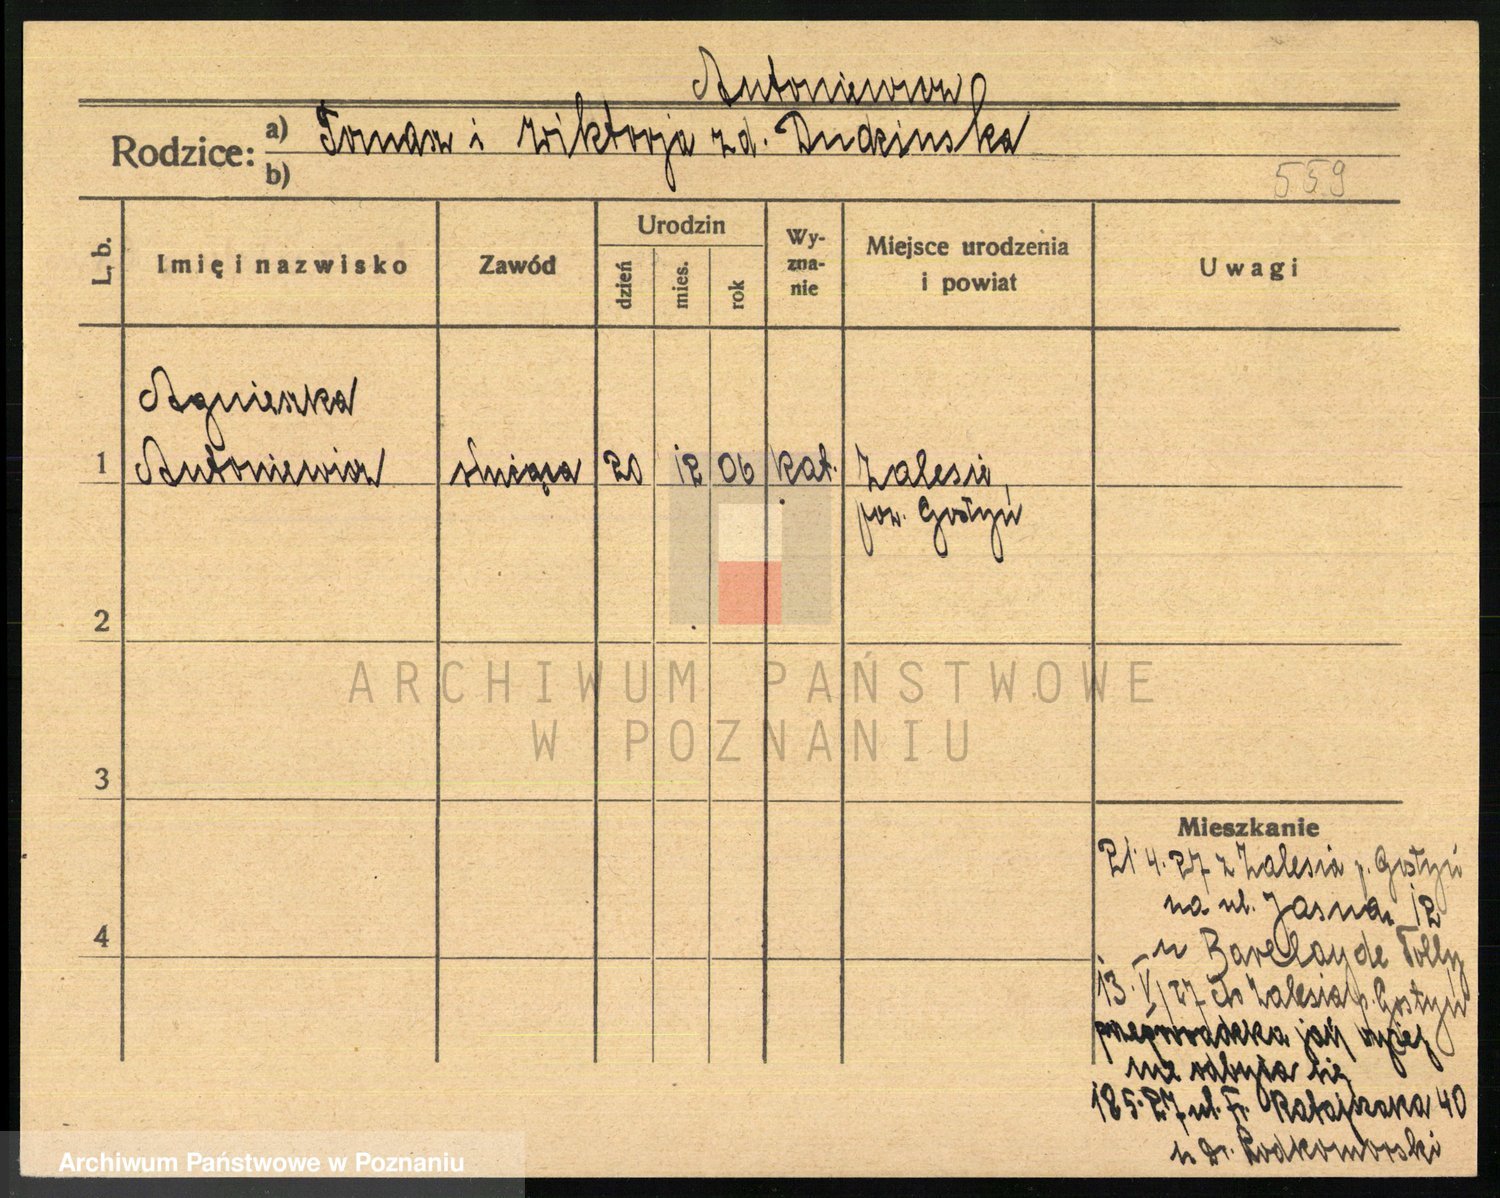 Antoniewicz
Rodzice: a) Tomasz i Wiktorja z d. Dudzinska
b)
559
L. b.
Imię i nazwisko
Zawód
Urodzin
dzień
mies.
rok
Wy-
zna-
nie
Miejsce urodzenia
i powiat
Uwagi
Agnieszka
1 Antoniewicz służąca 20 12 06 kat. Zalesie,
pow. Gostyń
2
3
4
ARCHIWUM PAŃSTWOWE
W POZNANIU
Mieszkanie
21.4.27 z Zalesia p. Gostyń
na ul. Jasna 12
u Barclay de Tolly
13.V.27 do Zalesia p. Gostyń
przeprowadzka jak wyżej
nie odbyła się
18.5.27 ul. Fr. Ratajczaka 40
u Dr. Podkomorski
Archiwum Państwowe w Poznaniu